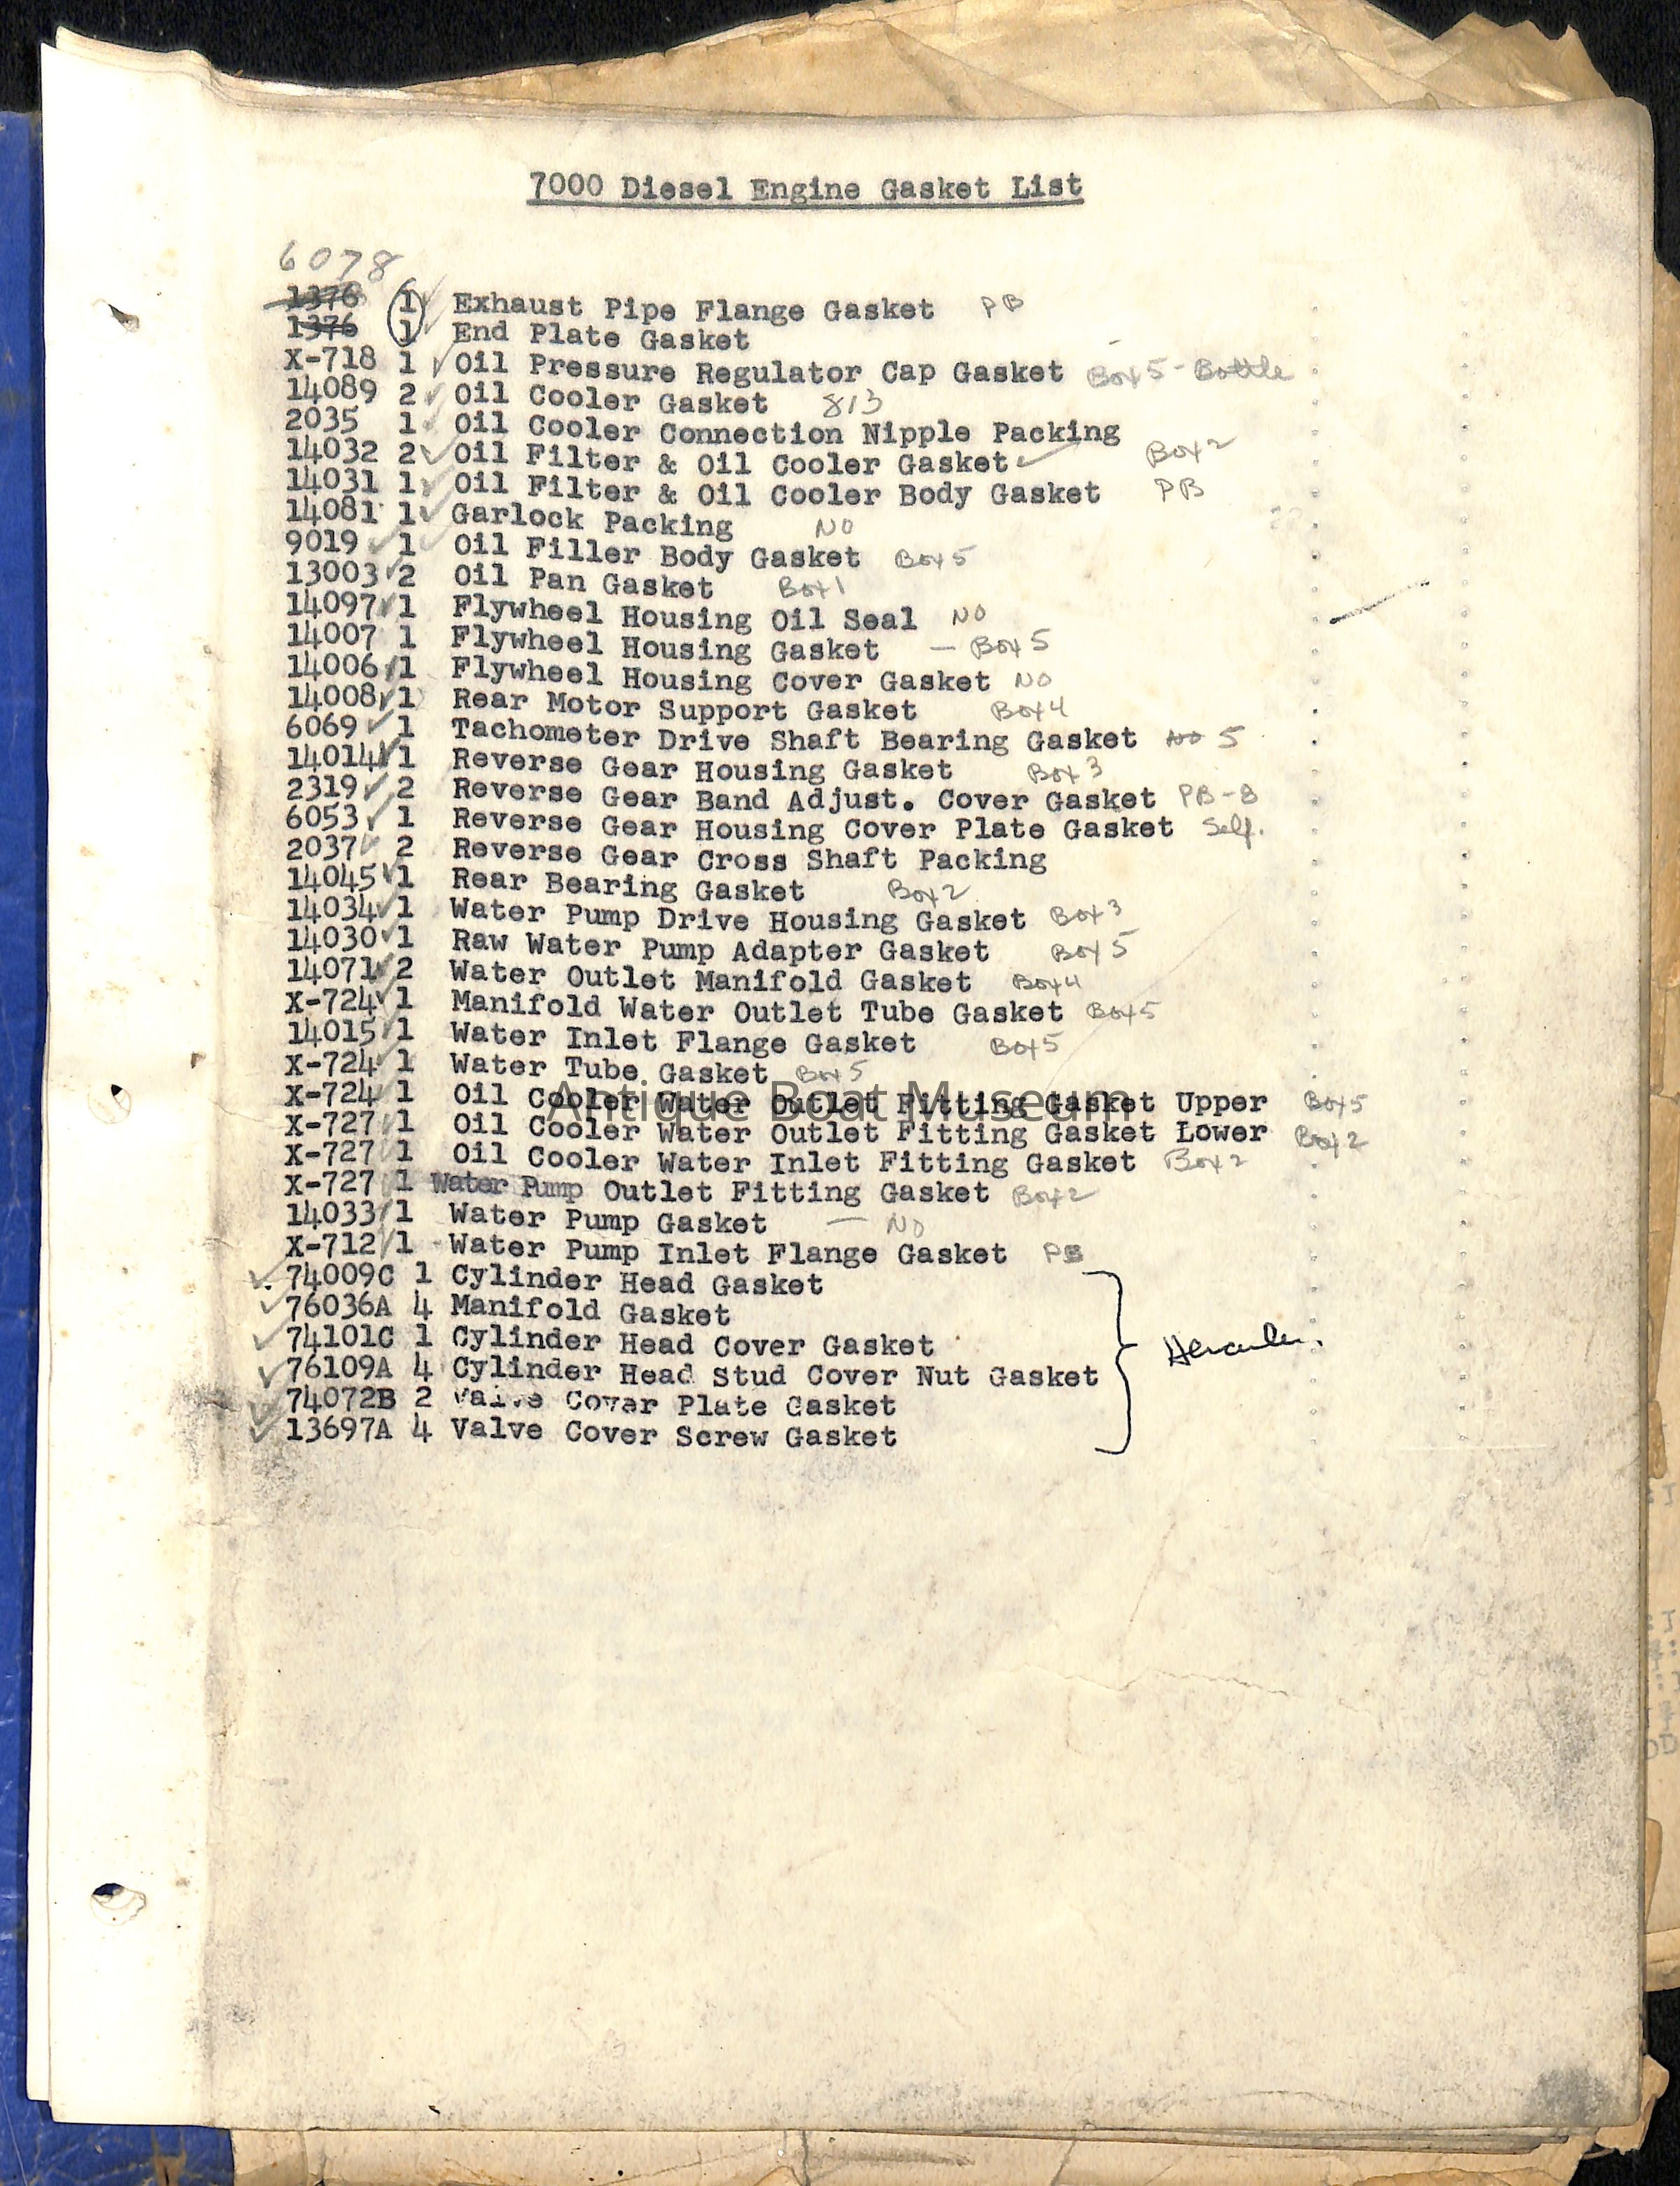 7000 Diesel Engine Gasket List
6078
1376 1 Exhaust Pipe Flange Gasket PB
1376 1 End Plate Gasket
X-718 1 Oil Pressure Regulator Cap Gasket Box 5 - Bottle
14089 2 Oil Cooler Gasket 813
2035 1 Oil Cooler Connection Nipple Packing
14032 2 Oil Filter & Oil Cooler Gasket Box 2
14031 1 Oil Filter & Oil Cooler Body Gasket PB
14081 1 Garlock Packing NO
9019 1 Oil Filler Body Gasket Box 5
13003 2 Oil Pan Gasket Box 1
14097 1 Flywheel Housing Oil Seal NO
14007 1 Flywheel Housing Gasket - Box 5
14006 1 Flywheel Housing Cover Gasket NO
14008 1 Rear Motor Support Gasket Box 4
6069 1 Tachometer Drive Shaft Bearing Gasket NO 5
14014 1 Reverse Gear Housing Gasket Box 3
2319 2 Reverse Gear Band Adjust. Cover Gasket PB-8
6053 1 Reverse Gear Housing Cover Plate Gasket Self.
2037 2 Reverse Gear Cross Shaft Packing
14045 1 Rear Bearing Gasket Box 2
14034 1 Water Pump Drive Housing Gasket Box 3
14030 1 Raw Water Pump Adapter Gasket Box 5
14071 2 Water Outlet Manifold Gasket Box 4
X-724 1 Manifold Water Outlet Tube Gasket Box 5
14015 1 Water Inlet Flange Gasket Box 5
X-724 1 Water Tube Gasket Box 5
X-724 1 Oil Cooler Water Outlet Fitting Gasket Upper Box 5
Antique Boat Museum
X-727 1 Oil Cooler Water Outlet Fitting Gasket Lower Box 2
X-727 1 Oil Cooler Water Inlet Fitting Gasket Box 2
X-727 1 Water Pump Outlet Fitting Gasket Box 2
14033 1 Water Pump Gasket - NO
X-712 1 Water Pump Inlet Flange Gasket PB
74009C 1 Cylinder Head Gasket
76036A 4 Manifold Gasket
74101C 1 Cylinder Head Cover Gasket
Hercules.
76109A 4 Cylinder Head Stud Cover Nut Gasket
74072B 2 Valve Cover Plate Gasket
13697A 4 Valve Cover Screw Gasket